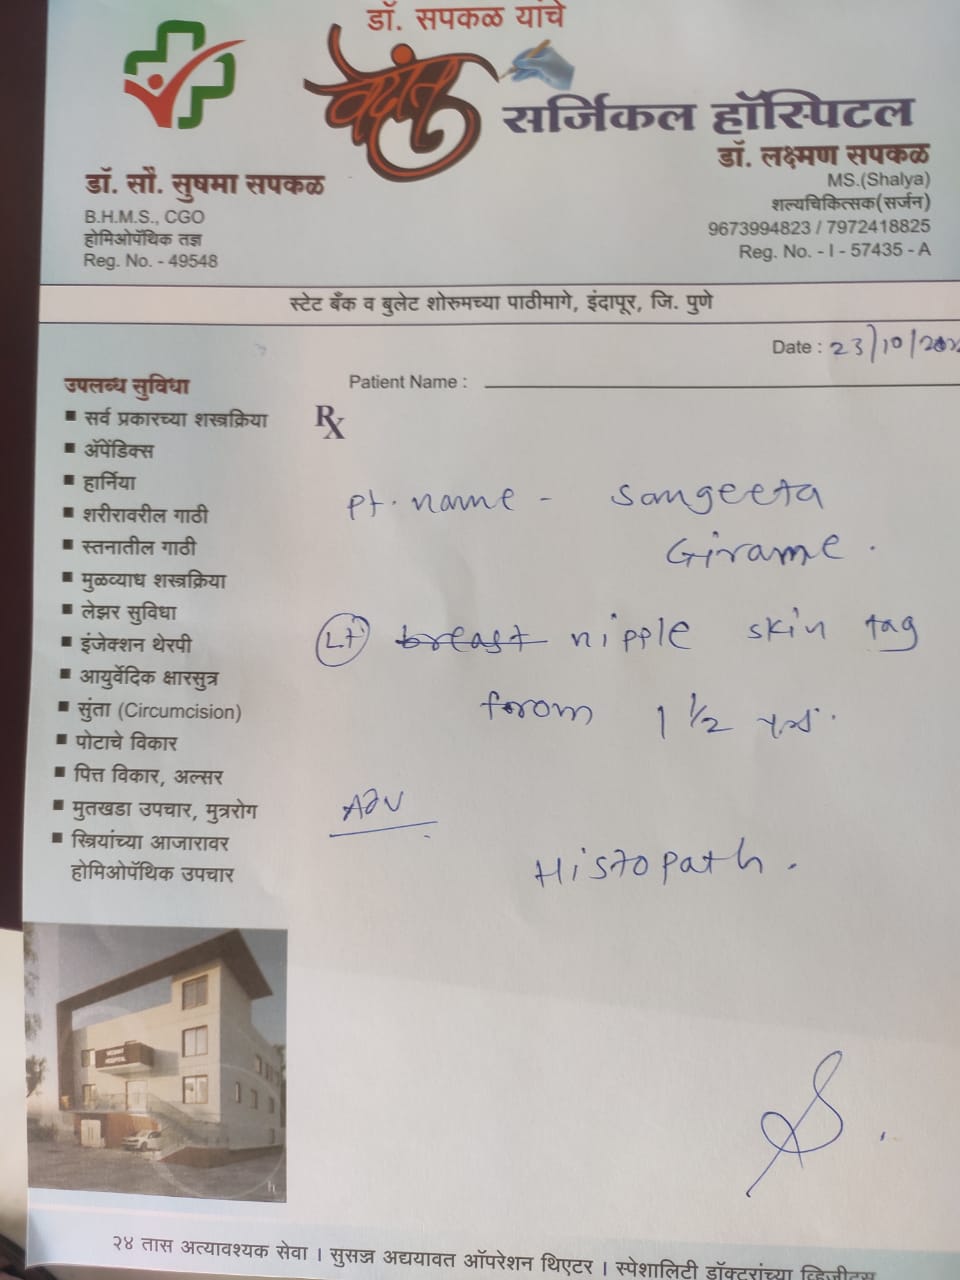 डॉ. सपकळ यांचे
वेदांत
सर्जिकल हॉस्पिटल
डॉ. सौ. सुषमा सपकळ
B.H.M.S., CGO
होमिओपॅथिक तज्ञ
Reg. No. - 49548
डॉ. लक्ष्मण सपकळ
MS.(Shalya)
शल्यचिकित्सक(सर्जन)
9673994823 / 7972418825
Reg. No. - I - 57435 - A
स्टेट बँक व बुलेट शोरुमच्या पाठीमागे, इंदापूर, जि. पुणे
Date : 23/10/202
Patient Name :
उपलब्ध सुविधा
सर्व प्रकारच्या शस्त्रक्रिया
ॲपेंडिक्स
हार्निया
शरीरावरील गाठी
स्तनातील गाठी
मुळव्याध शस्त्रक्रिया
लेझर सुविधा
इंजेक्शन थेरपी
आयुर्वेदिक क्षारसुत्र
सुंता (Circumcision)
पोटाचे विकार
पित्त विकार, अल्सर
मुतखडा उपचार, मुत्ररोग
स्त्रियांच्या आजारावर
होमिओपॅथिक उपचार
Rx
Pt. name - Sangeeta
Girame.
Lt breast nipple skin tag
from 1 1/2 yrs.
Adv
Histopath.
२४ तास अत्यावश्यक सेवा । सुसज्ज अद्ययावत ऑपरेशन थिएटर । स्पेशालिटी डॉक्टरांच्या व्हिजीटस